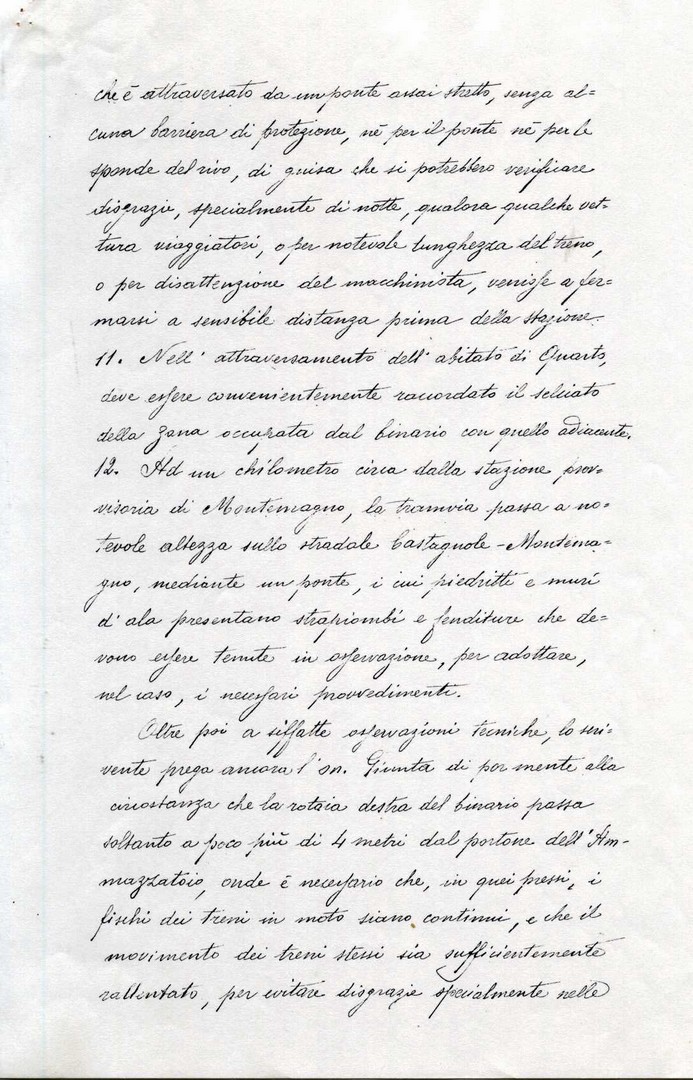 che è attraversato da un ponte assai stretto, senza al=
cuna barriera di protezione, nè per il ponte nè per le
sponde del rivo, di guisa che si potrebbero verificare
disgrazie, specialmente di notte, qualora qualche vet=
tura viaggiatori, o per notevole lunghezza del treno,
o per disattenzione del macchinista, venisse a fer=
marsi a sensibile distanza prima della stazione.
11. Nell' attraversamento dell' abitato di Quarto,
deve essere convenientemente raccordato il selciato
della zona occupata dal binario con quello adiacente.
12. Ad un chilometro circa dalla stazione prov=
visoria di Montemagno, la tramvia passa a no=
tevole altezza sullo stradale Castagnole-Montema=
gno, mediante un ponte, i cui piedritti e muri
d' ala presentano strapiombi e fenditure che de=
vono essere tenute in osservazione, per adottare,
nel caso, i necessari provvedimenti.
Oltre poi a siffatte osservazioni tecniche, lo scri=
vente prega ancora l' on. Giunta di por mente alla
circostanza che la rotaia destra del binario passa
soltanto a poco più di 4 metri dal portone dell' Am-
mazzatoio, onde è necessario che, in quei pressi, i
fischi dei treni in moto siano continui, e che il
movimento dei treni stessi sia sufficientemente
rallentato, per evitare disgrazie specialmente nelle